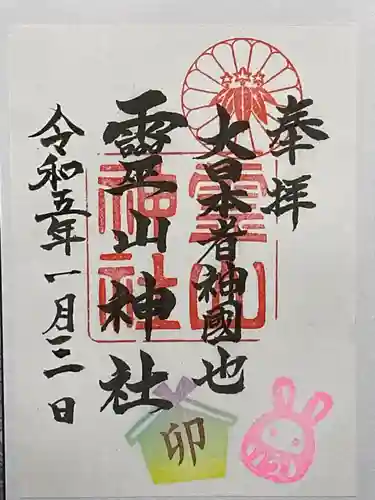 奉拝
大日本者神國也
霊山神社
令和五年一月三日
霊山神社
卯